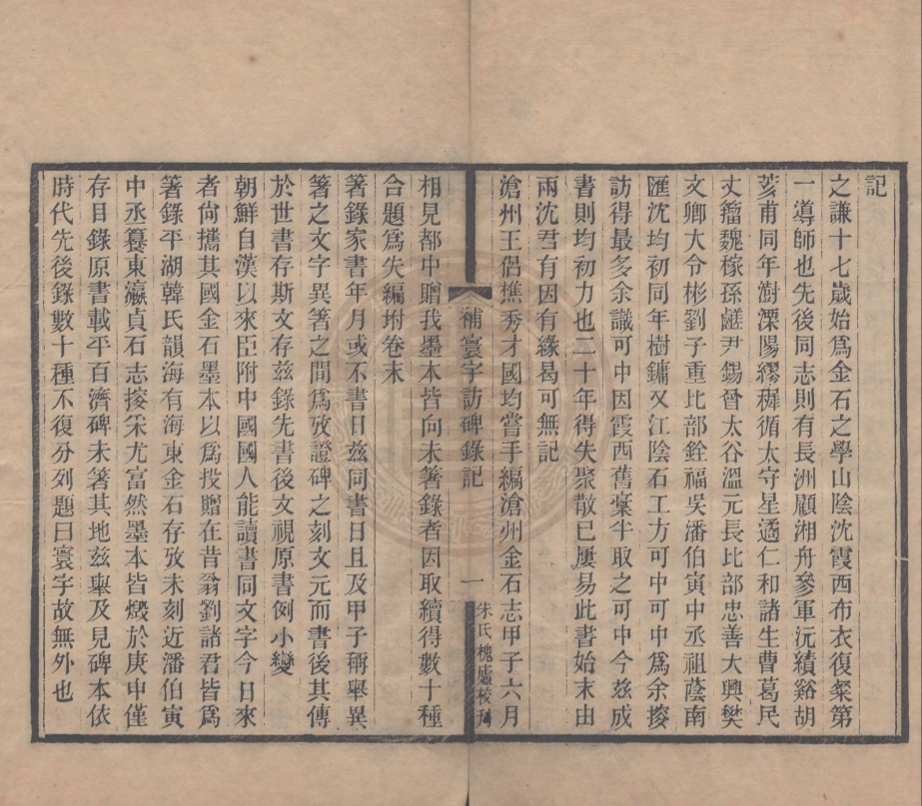 記
之謙十七歲始爲金石之學山陰沈霞西布衣復粲第
一導師也先後同志則有長洲顧湘舟參軍沅績谿胡
荄甫同年澍溧陽繆穉循太守星遹仁和諸生曹葛民
丈籀魏稼孫鹺尹錫曾太谷溫元長比部忠善大興樊
文卿大令彬劉子重比部銓福吳潘伯寅中丞祖蔭南
匯沈均初同年樹鏞又江陰石工方可中可中爲余搜
訪得最多余識可中因霞西舊稾半取之可中今茲成
書則均初力也二十年得失聚散巳屢易此書始末由
兩沈君有因有緣曷可無記
滄州王侶樵秀才國均嘗手編滄州金石志甲子六月
補寰宇訪碑錄記
一
朱氏槐廬校刋
相見都中贈我墨本皆向未箸錄者因取續得數十種
合題爲失編坿卷末
箸錄家書年月或不書日茲同書日且及甲子稱舉異
箸之文字異箸之閒爲攷證碑之刻文元而書後其傳
於世書存斯文存茲錄先書後文視原書例小變
朝鮮自漢以來臣附中國國人能讀書同文字今日來
者尙攜其國金石墨本以爲投贈在昔翁劉諸君皆爲
箸錄平湖韓氏韻海有海東金石存攷未刻近潘伯寅
中丞纂東瀛貞石志搜采尤富然墨本皆燬於庚申僅
存目錄原書載平百濟碑未箸其地茲舉及見碑本依
時代先後錄數十種不復分列題曰寰宇故無外也